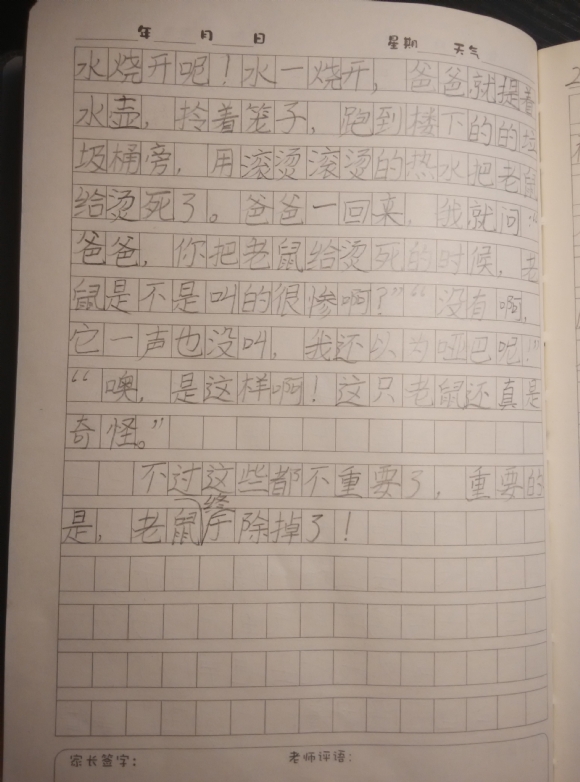 年 月 日 星期 天气
水烧开呢！水一烧开，爸爸就提着
水壶，拎着笼子，跑到楼下的的垃
圾桶旁，用滚烫滚烫的热水把老鼠
给烫死了。爸爸一回来，我就问“
爸爸，你把老鼠给烫死的时候，老
鼠是不是叫的很惨啊？”“没有啊，
它一声也没叫，我还以为哑巴呢！”
“噢，是这样啊！这只老鼠还真是
奇怪。”
不过这些都不重要了，重要的
是，老鼠终于除掉了！
家长签字： 老师评语：